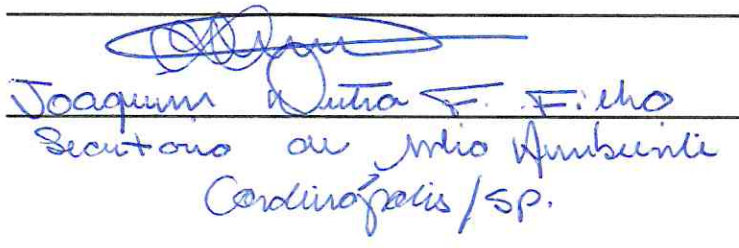 Joaquim Dutra F. Filho
Secretario de Meio Ambiente
Cordeirópolis/SP.